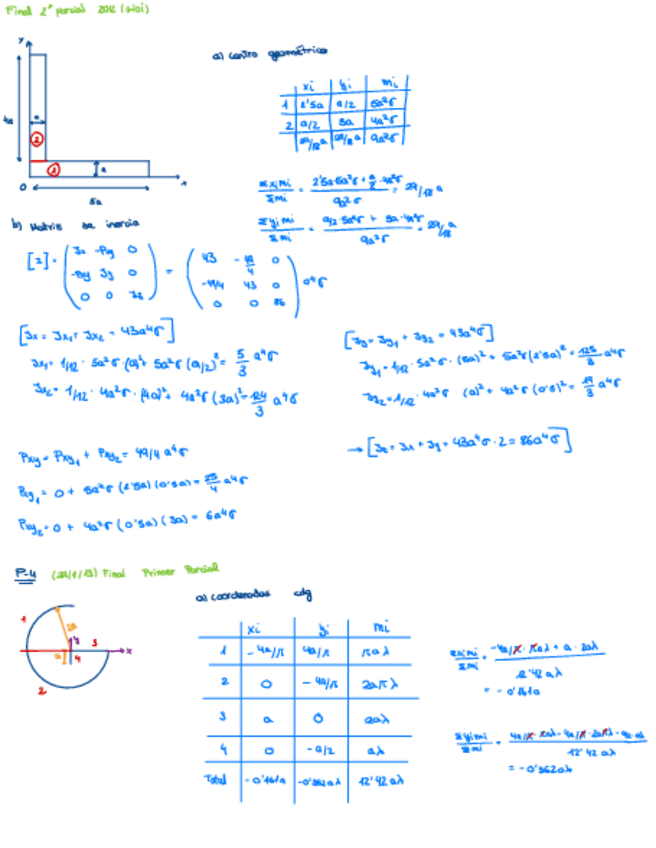 Final 2º parcial 2012
y
4a
a
2
1
a
0
5a
x
a) centro geométrico
xi yi mi
1 2'5a a/2 5a²σ
2 a/2 3a 4a²σ
29/18 a 29/18 a 9a²σ
Σximi/Σmi = (2'5a·5a²σ + a/2·4a²σ)/9a²σ = 29/18 a
Σyimi/Σmi = (a/2·5a²σ + 3a·4a²σ)/9a²σ = 29/18 a
b) Matriz de inercia
[I] = (Jx -Pxy 0 / -Pxy Jy 0 / 0 0 Jz) = (43 -49/4 0 / -49/4 43 0 / 0 0 86) a⁴σ
[Jx = Jx1 + Jx2 = 43a⁴σ]
Jx1 = 1/12 · 5a²σ·(a)² + 5a²σ(a/2)² = 5/3 a⁴σ
Jx2 = 1/12 · 4a²σ·(4a)² + 4a²σ(3a)² = 124/3 a⁴σ
[Jy = Jy1 + Jy2 = 43a⁴σ]
Jy1 = 1/12 · 5a²σ·(5a)² + 5a²σ(2'5a)² = 125/3 a⁴σ
Jy2 = 1/12 · 4a²σ (a)² + 4a²σ(0'5)² =
→ [Jz = Jx + Jy = 43a⁴σ·2 = 86a⁴σ]
Pxy = Pxy1 + Pxy2 = 49/4 a⁴σ
Pxy1 = 0 + 5a²σ(2'5a)(0'5a) = 25/4 a⁴σ
Pxy2 = 0 + 4a²σ(0'5a)(3a) = 6a⁴σ
P-4 Final Primer Parcial
1
2a
y
3
x
a
4
2
a) coordenadas cdg
xi yi mi
1 -4a/π 4a/π πaλ
2 0 -4a/π 2aπλ
3 a 0 2aλ
4 0 -a/2 aλ
Total -0'161a -0'362aλ 12'42aλ
Σximi/Σmi = (-4a/π·πaλ + a·2aλ)/12'42aλ
= -0'161a
Σyimi/Σmi = (4a/π·πaλ - 4a/π·2aπλ - a/2·aλ)/12'42aλ
= -0'362aλ